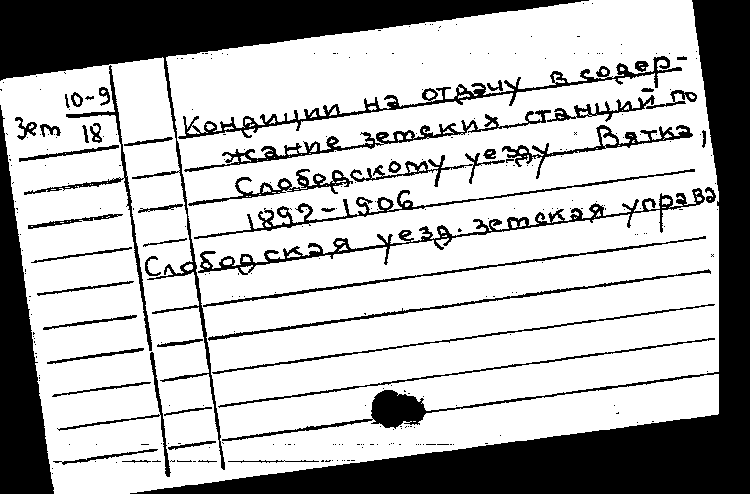 Зет 10-9/18
Кондиции на отдачу в содер-
жание земских станций по
Слободскому уезду Вятка,
1892-1906
Слободская уезд. земская управа